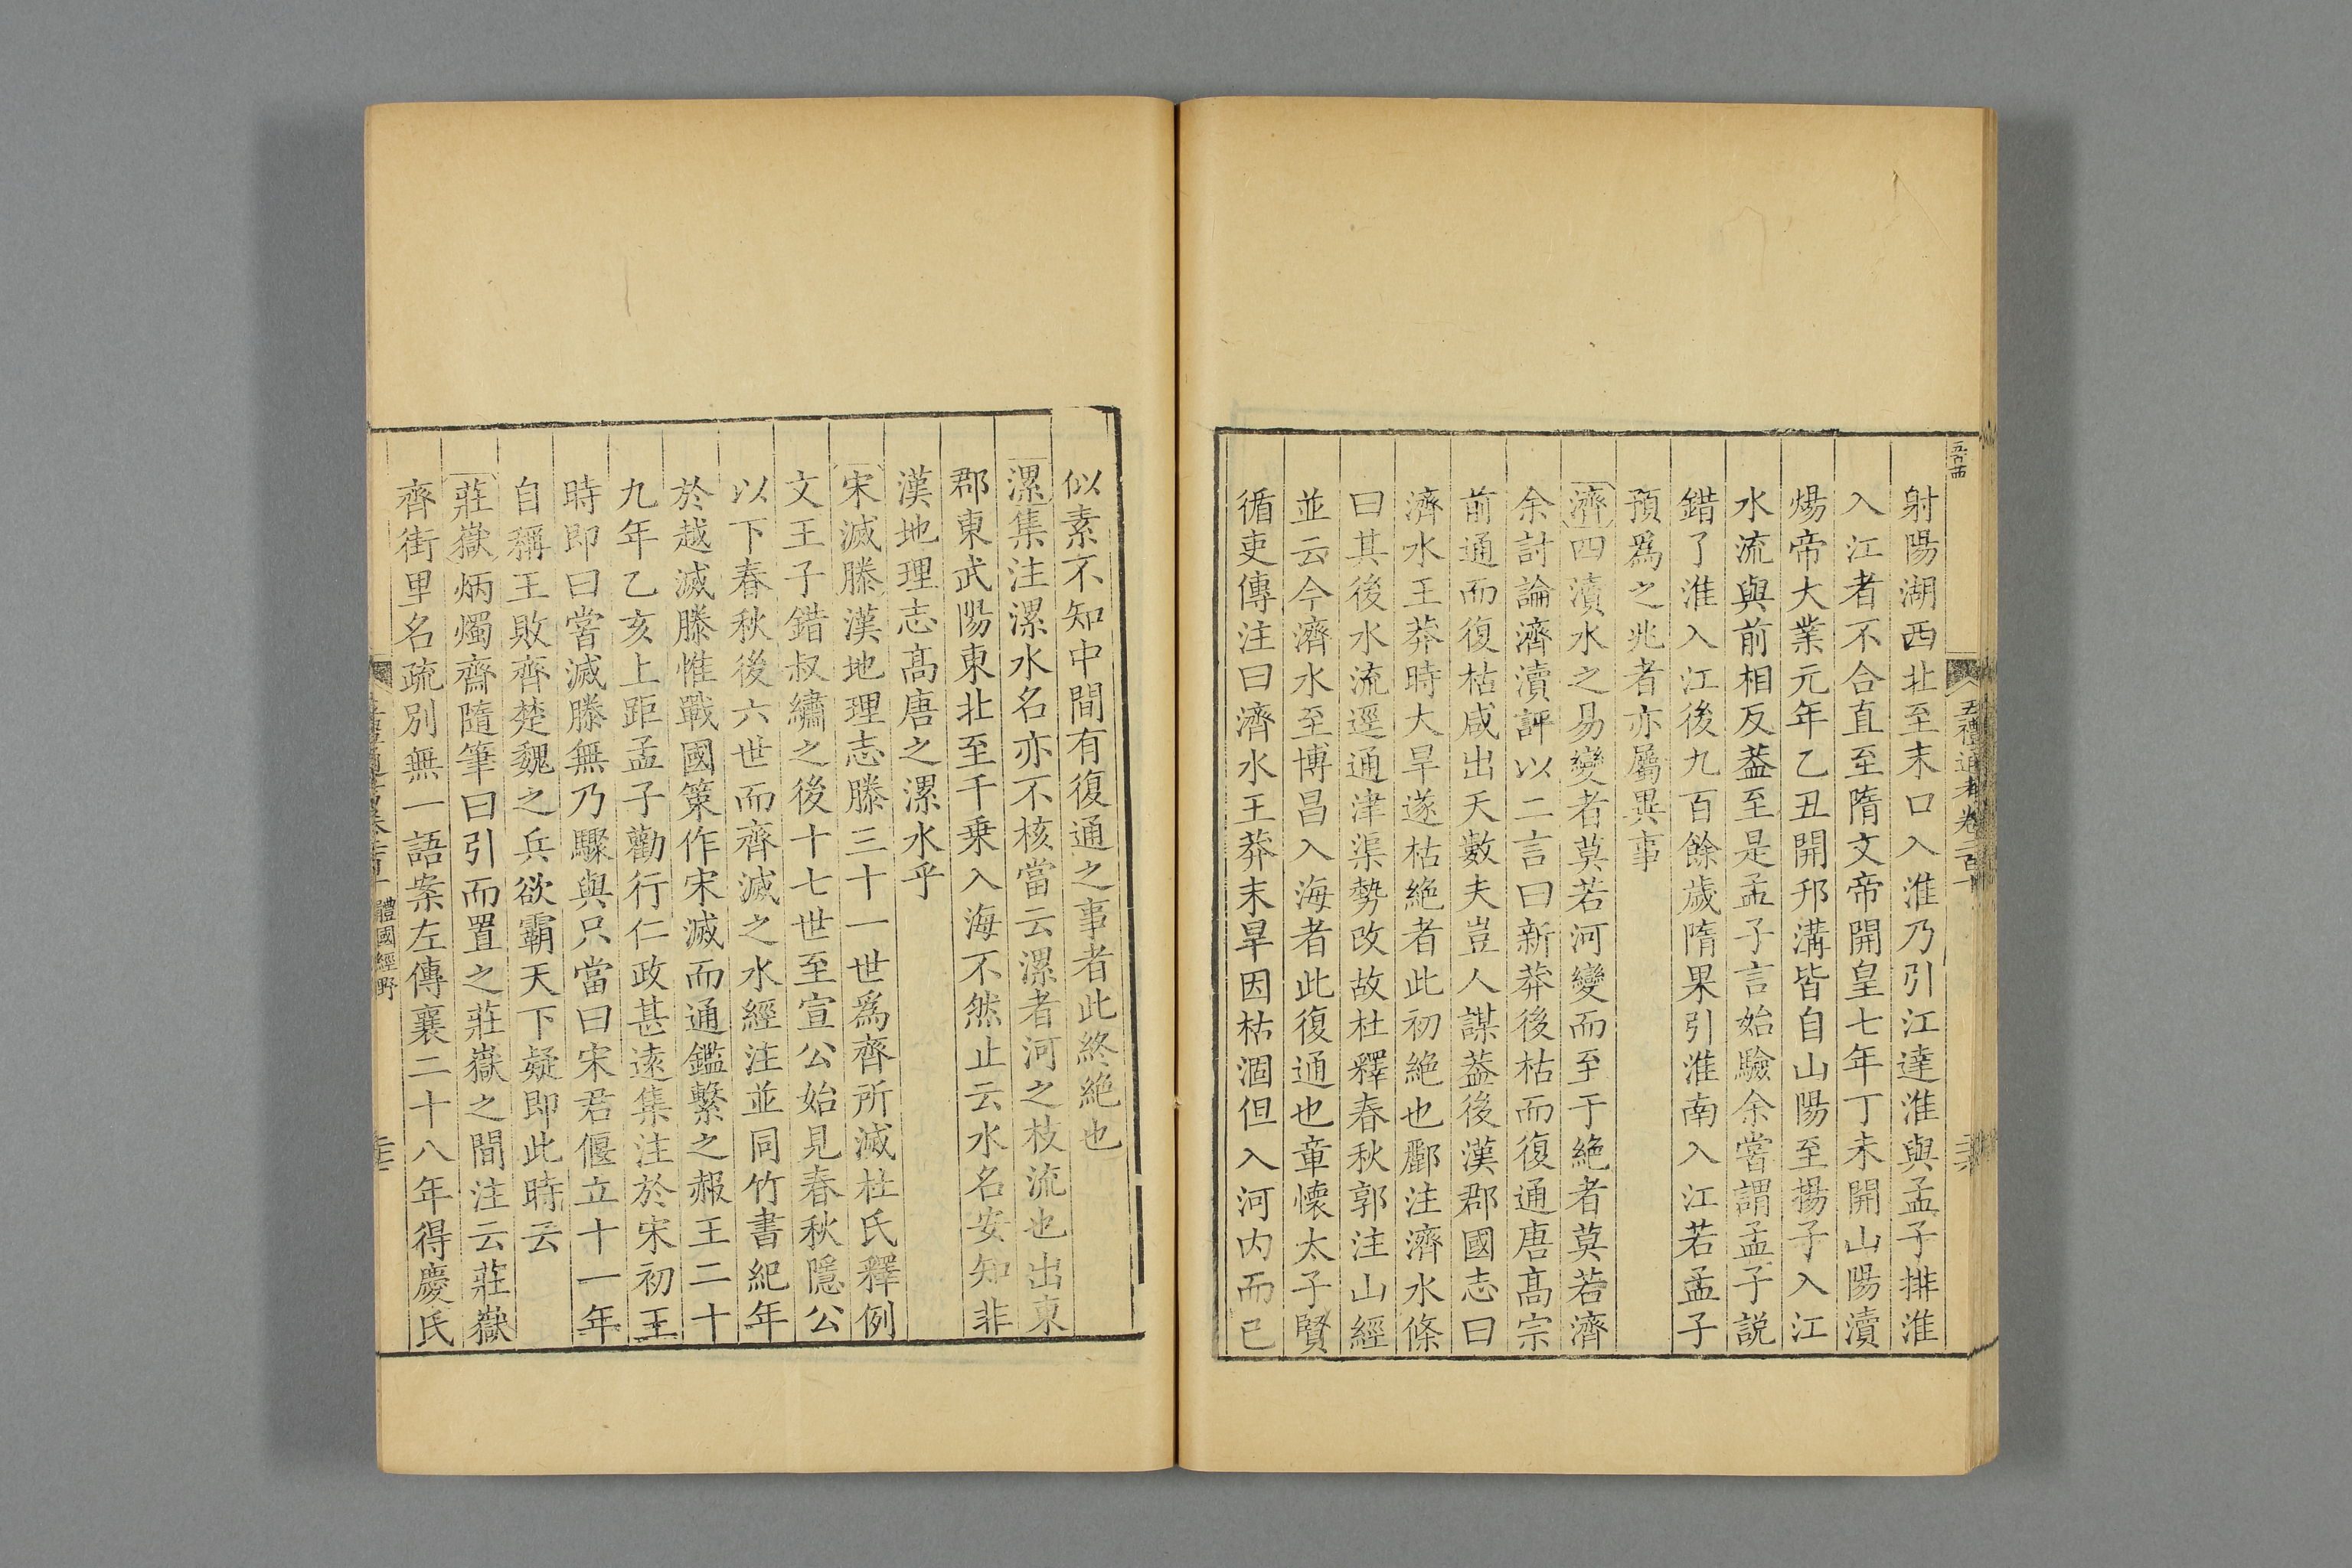 五禮通考卷二百十
射陽湖西北至末口入淮乃引江達淮與孟子排淮
入江者不合直至隋文帝開皇七年丁未開山陽瀆
煬帝大業元年乙丑開邗溝皆自山陽至揚子入江
水流與前相反葢至是孟子言始驗余嘗謂孟子説
錯了淮入江後九百餘歲隋果引淮南入江若孟子
預爲之兆者亦屬異事
濟四瀆水之易變者莫若河變而至于絶者莫若濟
余討論濟瀆評以二言曰新莽後枯而復通唐髙宗
前通而復枯咸出天數夫豈人謀葢後漢郡國志曰
濟水王莽時大旱遂枯絶者此初絶也酈注濟水條
曰其後水流逕通津渠勢改故杜釋春秋郭注山經
並云今濟水至博昌入海者此復通也章懷太子賢
循吏傳注曰濟水王莽末旱因枯涸但入河内而已
似素不知中間有復通之事者此終絶也
漯集注漯水名亦不核當云漯者河之枝流也出東
郡東武陽東北至千乗入海不然止云水名安知非
漢地理志髙唐之漯水乎
宋滅滕漢地理志滕三十一世爲齊所滅杜氏釋例
文王子錯叔繡之後十七世至宣公始見春秋隱公
以下春秋後六世而齊滅之水經注並同竹書紀年
於越滅滕惟戰國策作宋滅而通鑑繫之赧王二十
九年乙亥上距孟子勸行仁政甚遠集注於宋初王
時即曰嘗滅滕無乃驟與只當曰宋君偃立十一年
自稱王敗齊楚魏之兵欲霸天下疑即此時云
莊嶽炳燭齋隨筆曰引而置之莊嶽之間注云莊嶽
齊街里名疏别無一語案左傳襄二十八年得慶氏
體國經野